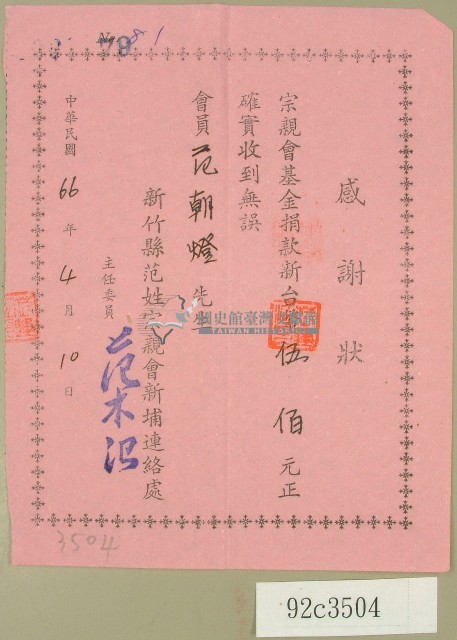 感謝狀
宗親會基金捐款新台幣伍佰元正
確實收到無誤
會員范朝燈先生
新竹縣范姓宗親會新埔連絡處
主任委員
范木沼
中華民國66年4月10日
No 79
81
國史館臺灣文獻館
TAIWAN HISTORICA
3504
92c3504